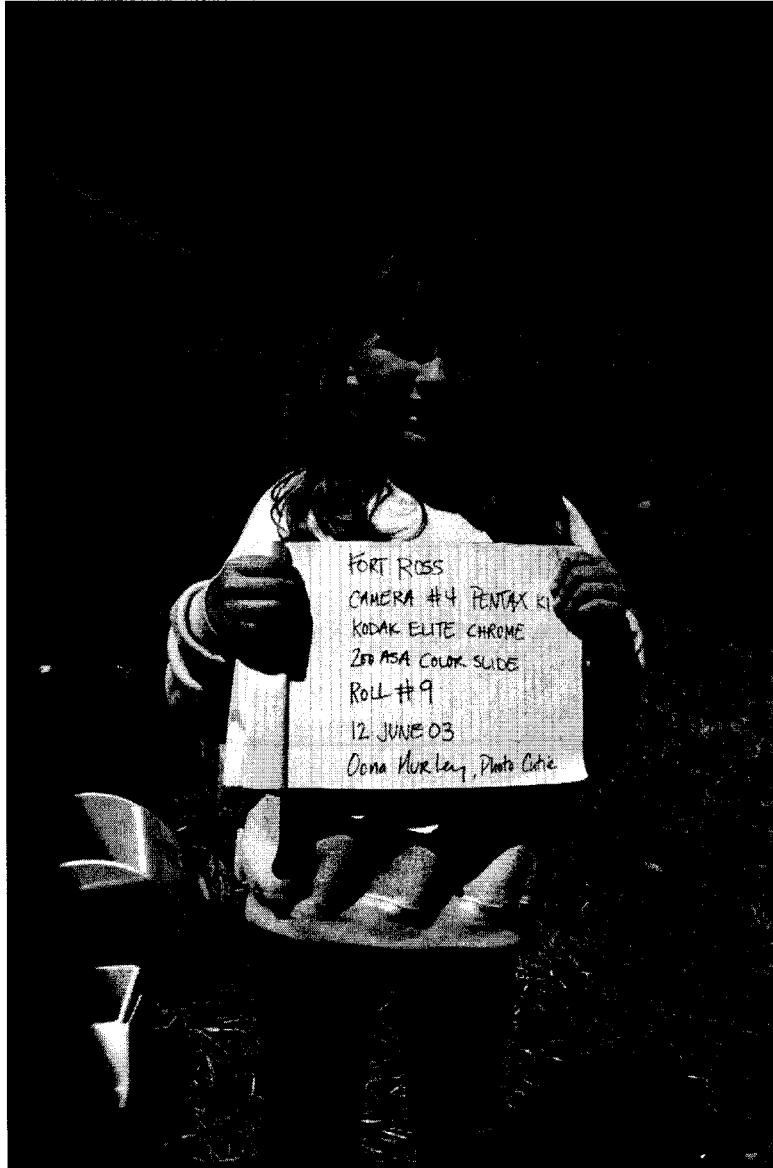 FORT ROSS
CAMERA #4 PENTAX K1
KODAK ELITE CHROME
200 ASA COLOR SLIDE
ROLL #9
12 JUNE 03
Oona Hurley, Photo Cutie